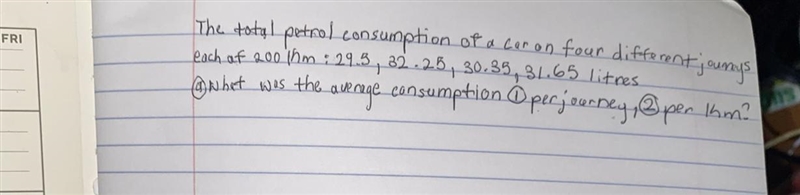 FRI
The total petrol consumption of a car on four different journys
each of 200 km : 29.5, 32.25, 30.35, 31.65 litres
ⓐ What was the average consumption ① per journey, ② per 1km?